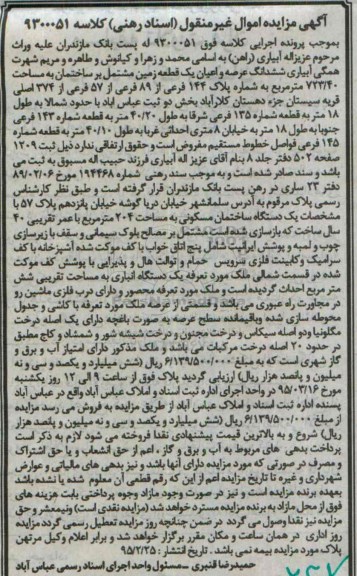 آگهی مزایده اموال غیرمنقول (اسناد رهنی) کلاسه ۹۳۰۰۰۵۱
بموجب پرونده اجرایی کلاسه فوق ۹۳۰۰۰۵۱ له پست بانک مازندران علیه وراث
مرحوم عزیزاله آبیاری (راهن) به اسامی محمد و زهرا و کیانوش و طاهره و مریم شهرت
همگی آبیاری ششدانگ عرصه و اعیان یک قطعه زمین مشتمل بر ساختمان به مساحت
۷۲۳/۴۰ مترمربع به شماره پلاک ۱۴۴ فرعی از ۸۹ فرعی از ۵۷ فرعی از ۳۷۴ اصلی
قریه سیستان جزء دهستان کلارآباد بخش دو ثبت عباس آباد با حدود شمالا به طول
۱۸ متر به قطعه شماره ۱۳۵ فرعی شرقا به طول ۴۰/۲۰ متر به قطعه شماره ۱۴۳ فرعی
جنوبا به طول ۱۸ متر به خیابان ۸ متری احداثی غربا به طول ۴۰/۱۰ متر به قطعه شماره
۱۴۵ فرعی فواصل خطوط مستقیم مفروض است و حقوق ارتفاقی ندارد ذیل ثبت ۱۲۰۹
صفحه ۵۰۲ دفتر جلد ۸ بنام آقای عزیز اله آبیاری فرزند حبیب اله مسبوق به ثبت می
باشد و سند صادر شده است و به موجب سند رهنی شماره ۱۹۴۴۶۸ مورخ ۸۹/۰۲/۰۶
دفتر ۲۳ ساری در رهن پست بانک مازندران قرار گرفته است و طبق نظر کارشناس
رسمی پلاک مرقوم به آدرس سلمانشهر خیابان دریا گوشه خیابان پانزدهم پلاک ۵۷ با
مشخصات یک دستگاه ساختمان مسکونی به مساحت ۲۰۴ مترمربع با عمر تقریبی ۴۰
سال ساخت که بازسازی شده است مشتمل بر مصالح بلوک سیمانی و سقف با زیرسازی
چوب و لمبه و پوشش ایرانیت شامل پنج اتاق خواب با کف موکت شده آشپزخانه با کف
سرامیک و کابینت فلزی سرویس حمام و توالت هال و پذیرایی با پوشش کف موکت
شده در قسمت شمالی ملک مورد تعرفه یک دستگاه انباری به مساحت تقریبی شش
متر مربع احداث گردیده است و ملک مورد تعرفه محصور و دارای درب فلزی ماشین رو
در مجاورت راه عبوری می باشد و قسمتی از عرصه ملک مورد تعرفه با کاشی و جدول
محوطه سازی شده و باقیمانده سطح عرصه به صورت باغچه دارای یک اصله درخت
مگلونیا و دو اصله سیکاس و درخت مجنون و درخت شیشه شور و شمشاد و کاج مطبق
در حدود ۲۰ اصله درخت مرکبات می باشد و ملک مذکور دارای امتیاز آب و برق و
گاز شهری است که به مبلغ ۶/۱۳۹/۵۰۰/۰۰۰ ریال (شش میلیارد و یکصد و سی و نه
میلیون و پانصد هزار ریال) ارزیابی گردید پلاک فوق از ساعت ۹ الی ۱۲ روز یکشنبه
مورخ ۹۵/۰۳/۱۶ در واحد اجرای اداره ثبت اسناد و املاک عباس آباد واقع در عباس آباد
پسنده اداره ثبت اسناد و املاک عباس آباد از طریق مزایده به فروش می رسد مزایده
از مبلغ ۶/۱۳۹/۵۰۰/۰۰۰ ریال (شش میلیارد و یکصد و سی و نه میلیون و پانصد هزار
ریال) شروع و به بالاترین قیمت پیشنهادی نقدا فروخته می شود لازم به ذکر است
پرداخت بدهی های مربوط به آب و برق و گاز ، اعم از حق انشعاب و یا حق اشتراک
و مصرف در صورتی که مورد مزایده دارای آنها باشد و نیز بدهی های مالیاتی و عوارض
شهرداری و غیره تا تاریخ مزایده اعم از این که رقم قطعی آن معلوم شده یا نشده باشد
بعهده برنده مزایده است و نیز در صورت وجود مازاد وجوه پرداختی بابت هزینه های
فوق از محل مازاد به برنده مزایده مسترد خواهد شد (مزایده نقدی است) و نیمعشر و حق
مزایده نیز نقدا وصول می گردد در ضمن چنانچه روز مزایده تعطیل رسمی گردد مزایده
روز اداری در همان ساعت و مکان مقرر برگزار خواهد شد و برابر اعلام وکیل مرتهن
پلاک مورد مزایده بیمه نمی باشد . تاریخ انتشار : ۹۵/۲/۲۵
حمیدرضا قنبری - مسئول واحد اجرای اسناد رسمی عباس آباد